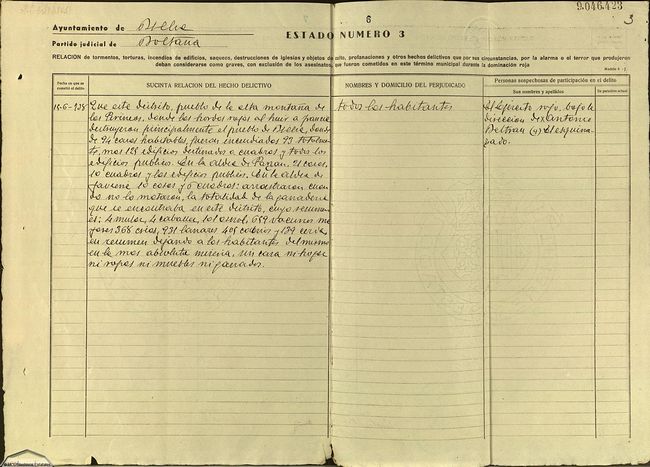 6
9.046.423
3
Ayuntamiento de Bielsa
Partido judicial de Boltaña
ESTADO NUMERO 3
RELACION de tormentos, torturas, incendios de edificios, saqueos, destrucciones de iglesias y objetos de culto, profanaciones y otros hechos delictivos que por sus circunstancias, por la alarma o el terror que produjeron
deban considerarse como graves, con exclusión de los asesinatos, que fueron cometidos en este término municipal durante la dominación roja
Fecha en que se cometió el delito
SUCINTA RELACION DEL HECHO DELICTIVO
NOMBRES Y DOMICILIO DEL PERJUDICADO
Personas sospechosas de participación en el delito
Sus nombres y apellidos
Su paradero actual
15-6-938
Que este distrito, pueblo de la alta montaña de
los Pirineos, donde las hordas rojas al huir a francia
destruyeron principalmente el pueblo de Bielsa, donde
de 94 casas habitables, fueron incendiadas 93 totalmen
te, mas 128 edificios destinados a cuadras y todos los
edificios publicos. En la aldea de Parzan, 21 casas,
10 cuadras y los edificios publicos. En la aldea de
Javierre 10 casas y 6 cuadras: arrastraron cuan
do no lo mataron, la totalidad de la ganaderia
que se encontraba en este distrito, cuyo resumen
es; 4 mulas, 4 caballos, 101 asnos, 659 vacunos ma
yores 368 crias, 931 lanares 405 cabrios y 139 cerda,
en resumen dejando a los habitantes del mismo
en la mas absoluta miseria, sin casa ni hogar
ni ropas ni muebles ni ganados.
todos los habitantes
El Ejercito rojo, bajo la
direccion de Antonio
Beltran (a) el esquina-
zado.